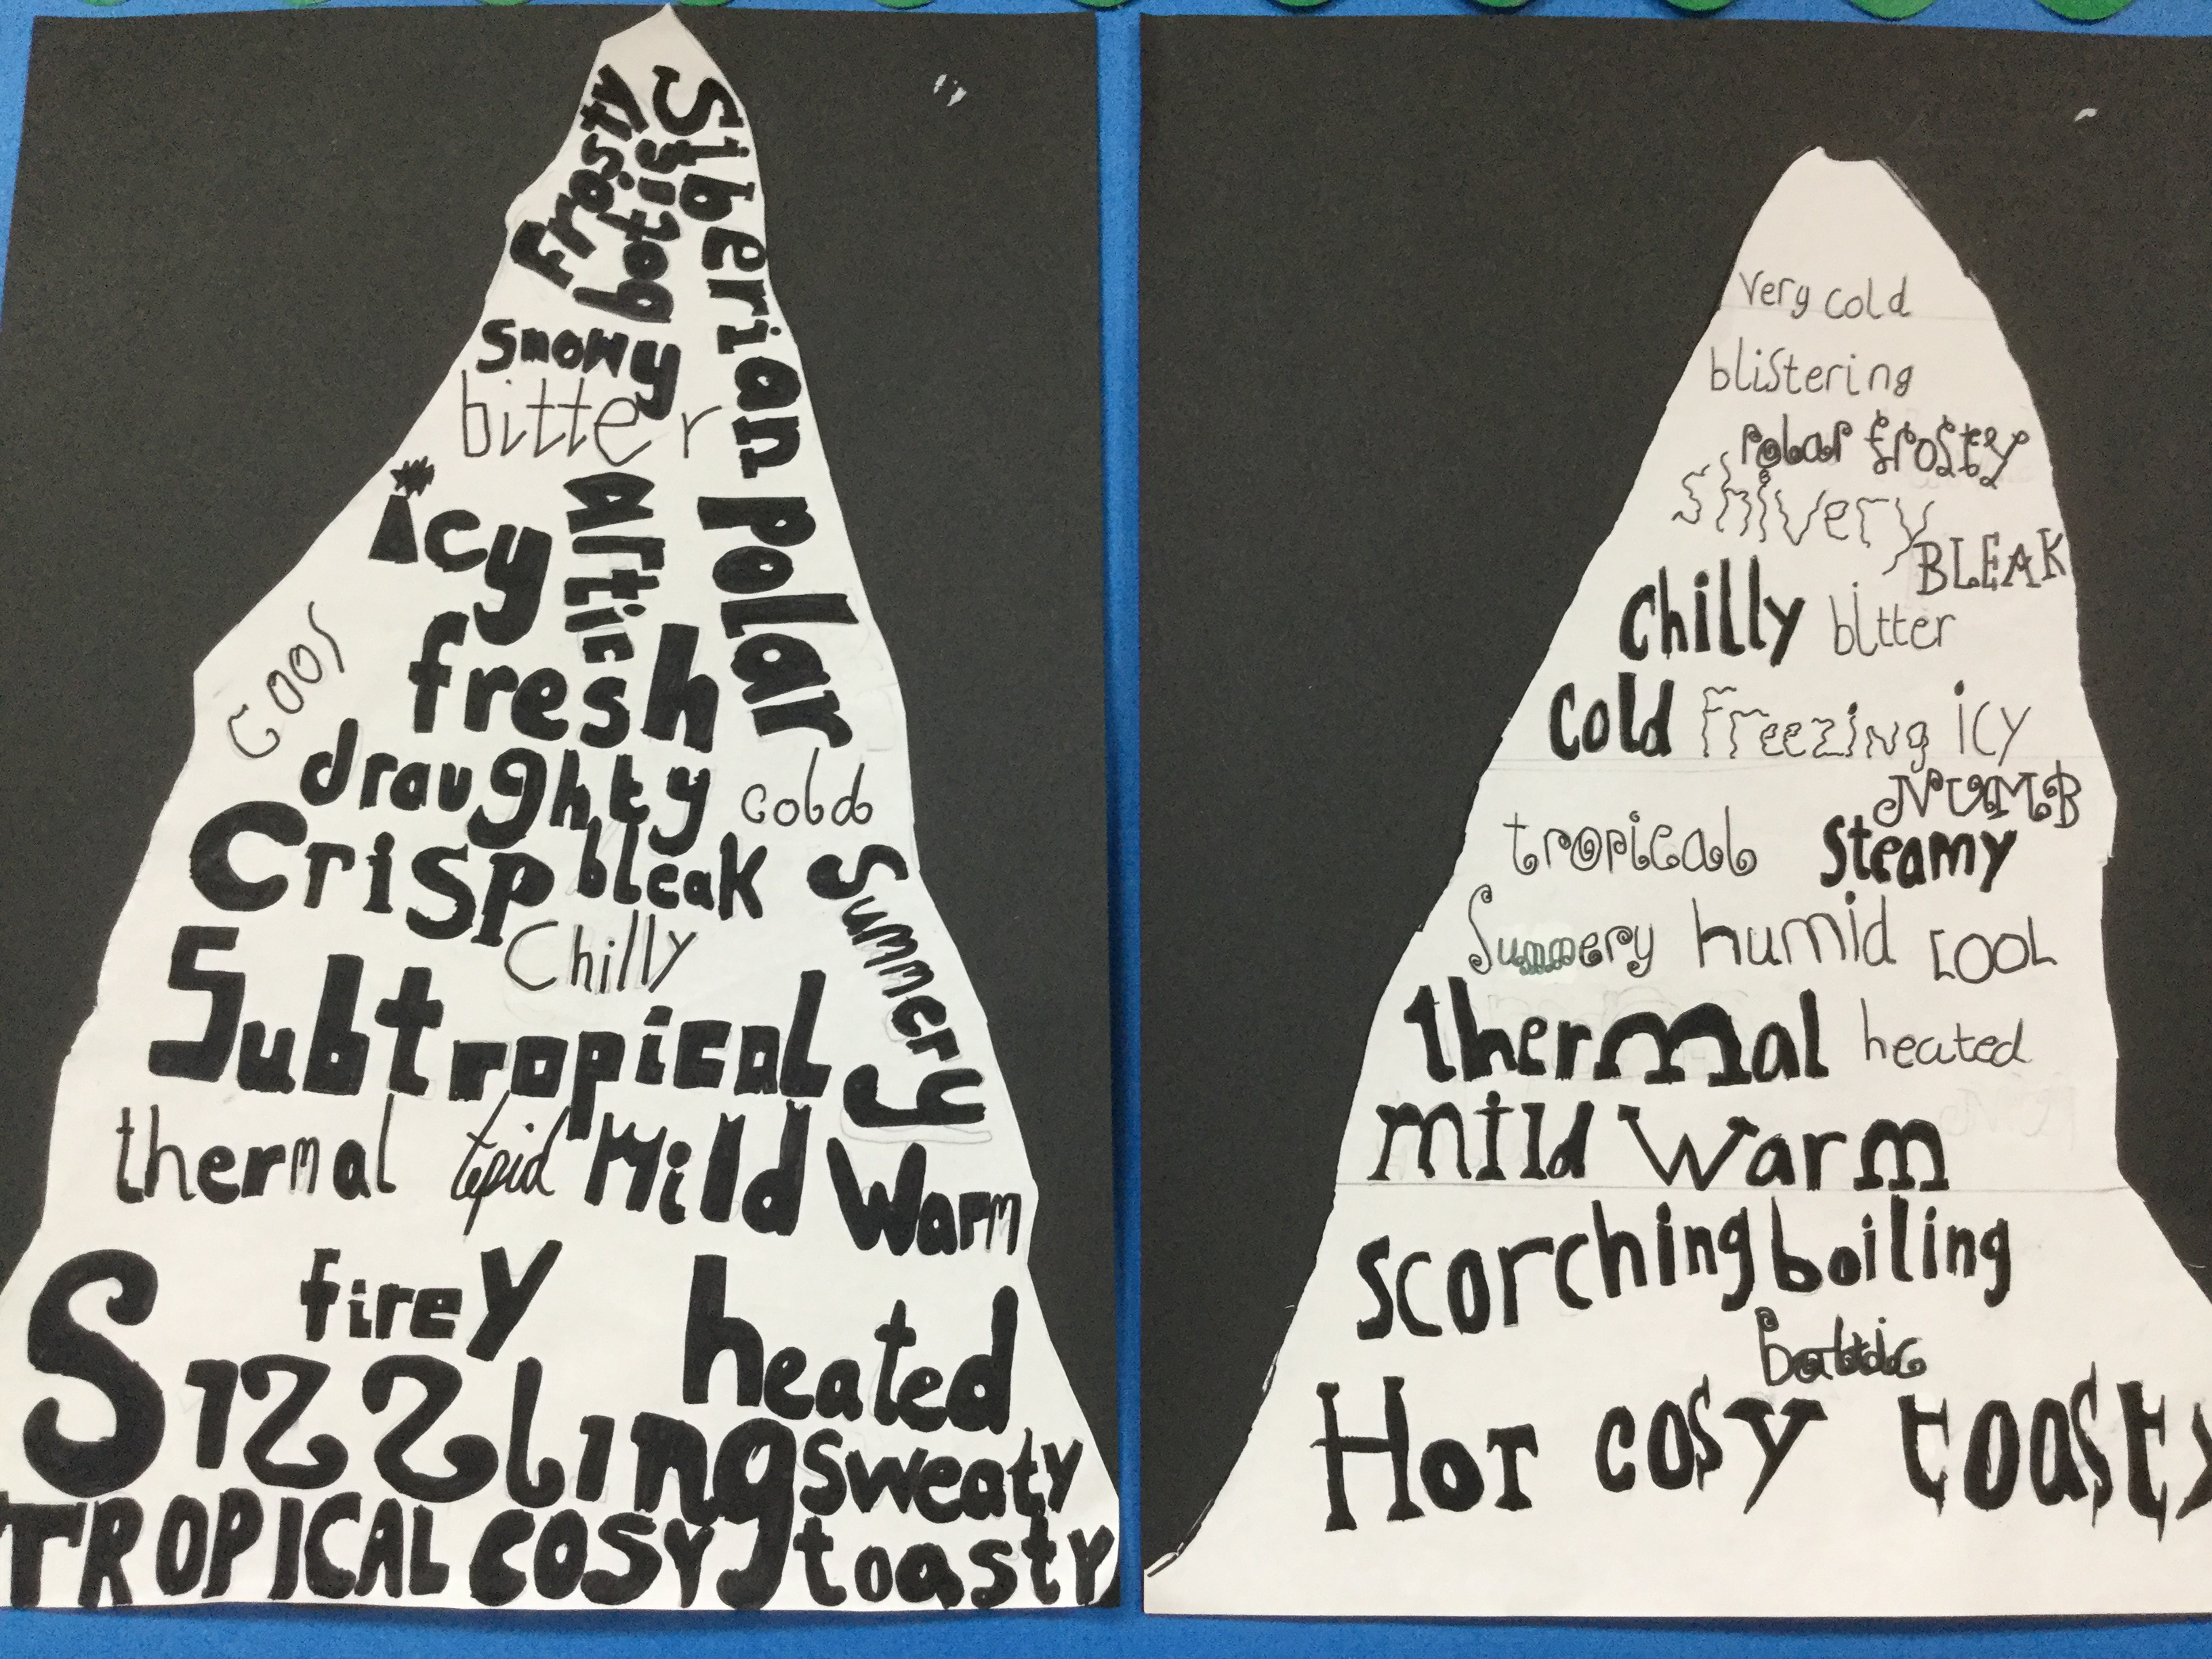 Siberian polar
frosty
biting
snowy
bitter
icy
artic
fresh
cool
draughty cold
Crisp bleak
Summery
Chilly
Subtropical
thermal tepid Mild Warm
firey heated
Sizzling sweaty
TROPICAL COSY toasty
very cold
blistering
polar frosty
shivery
BLEAK
Chilly bitter
Cold Freezing icy
NUMB
tropical Steamy
Summery humid COOL
thermal heated
mild warm
scorching boiling
baltic
HOT cosy toasty